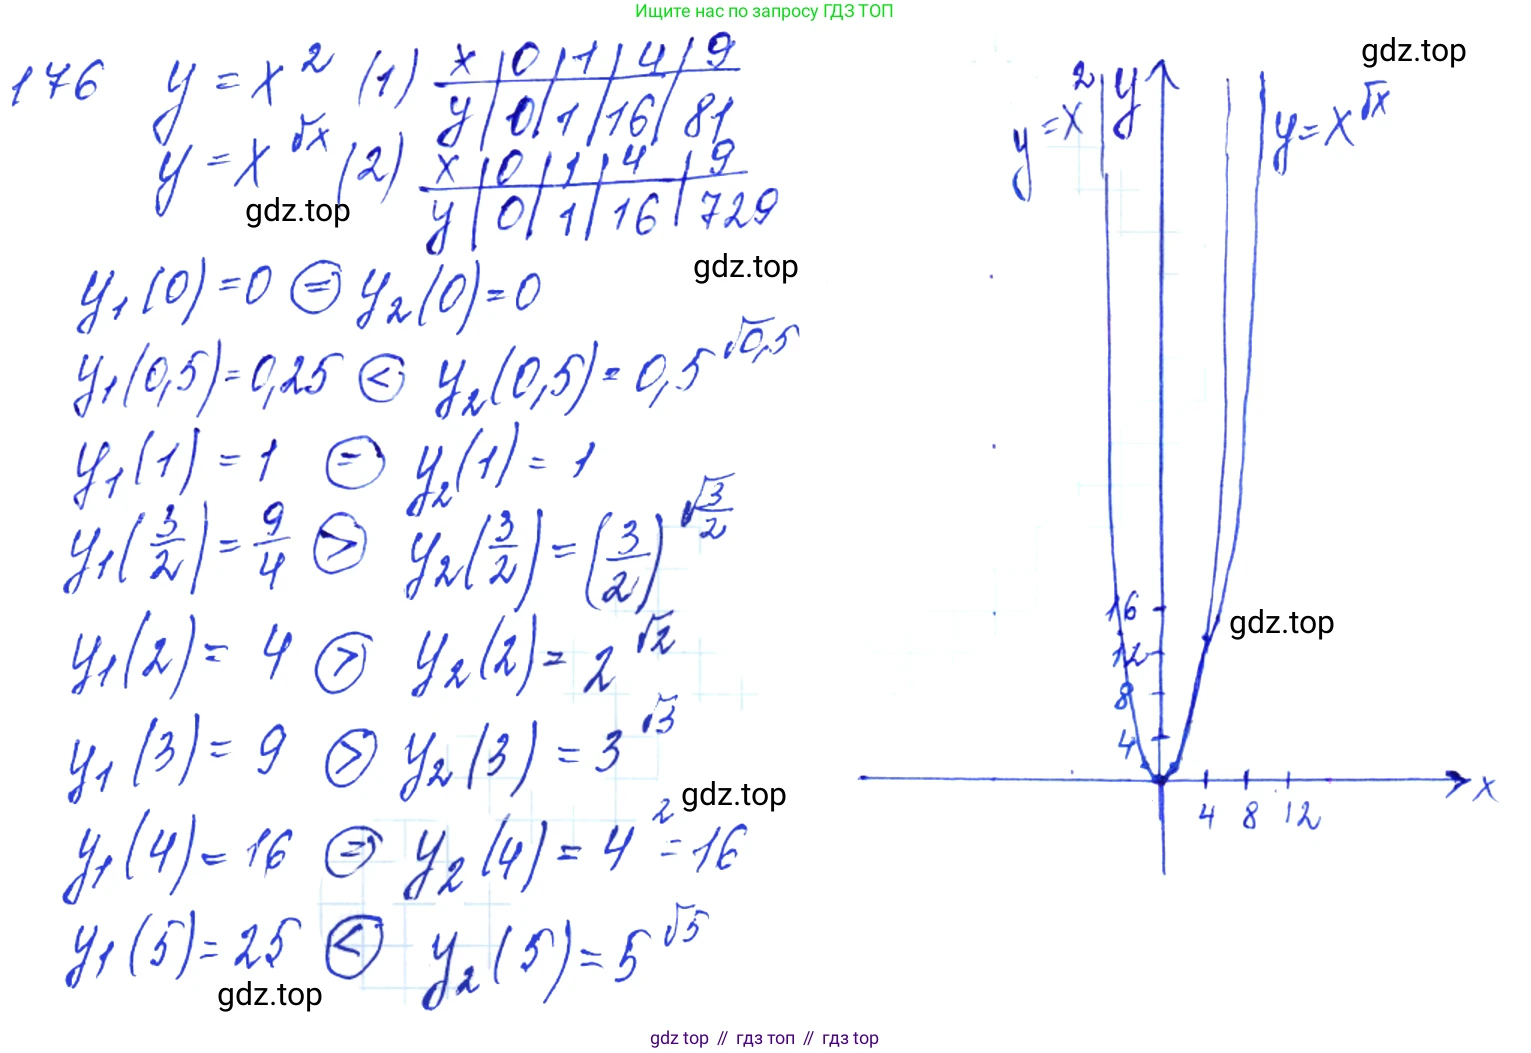 Ищите нас по запросу ГДЗ ТОП
gdz.top
176 y = x² (1) x | 0 | 1 | 4 | 9
y | 0 | 1 | 16 | 81
y = x^√x (2) x | 0 | 1 | 4 | 9
y | 0 | 1 | 16 | 729
gdz.top
gdz.top
y₁(0) = 0 = y₂(0) = 0
y₁(0,5) = 0,25 < y₂(0,5) = 0,5^√0,5
y₁(1) = 1 = y₂(1) = 1
y₁(3/2) = 9/4 > y₂(3/2) = (3/2)^√(3/2)
y₁(2) = 4 > y₂(2) = 2^√2
y₁(3) = 9 > y₂(3) = 3^√3
gdz.top
y₁(4) = 16 = y₂(4) = 4² = 16
y₁(5) = 25 < y₂(5) = 5^√5
gdz.top
y = x²
y
y = x^√x
16
gdz.top
12
8
4
x
4 8 12
gdz top // гдз топ // gdz top